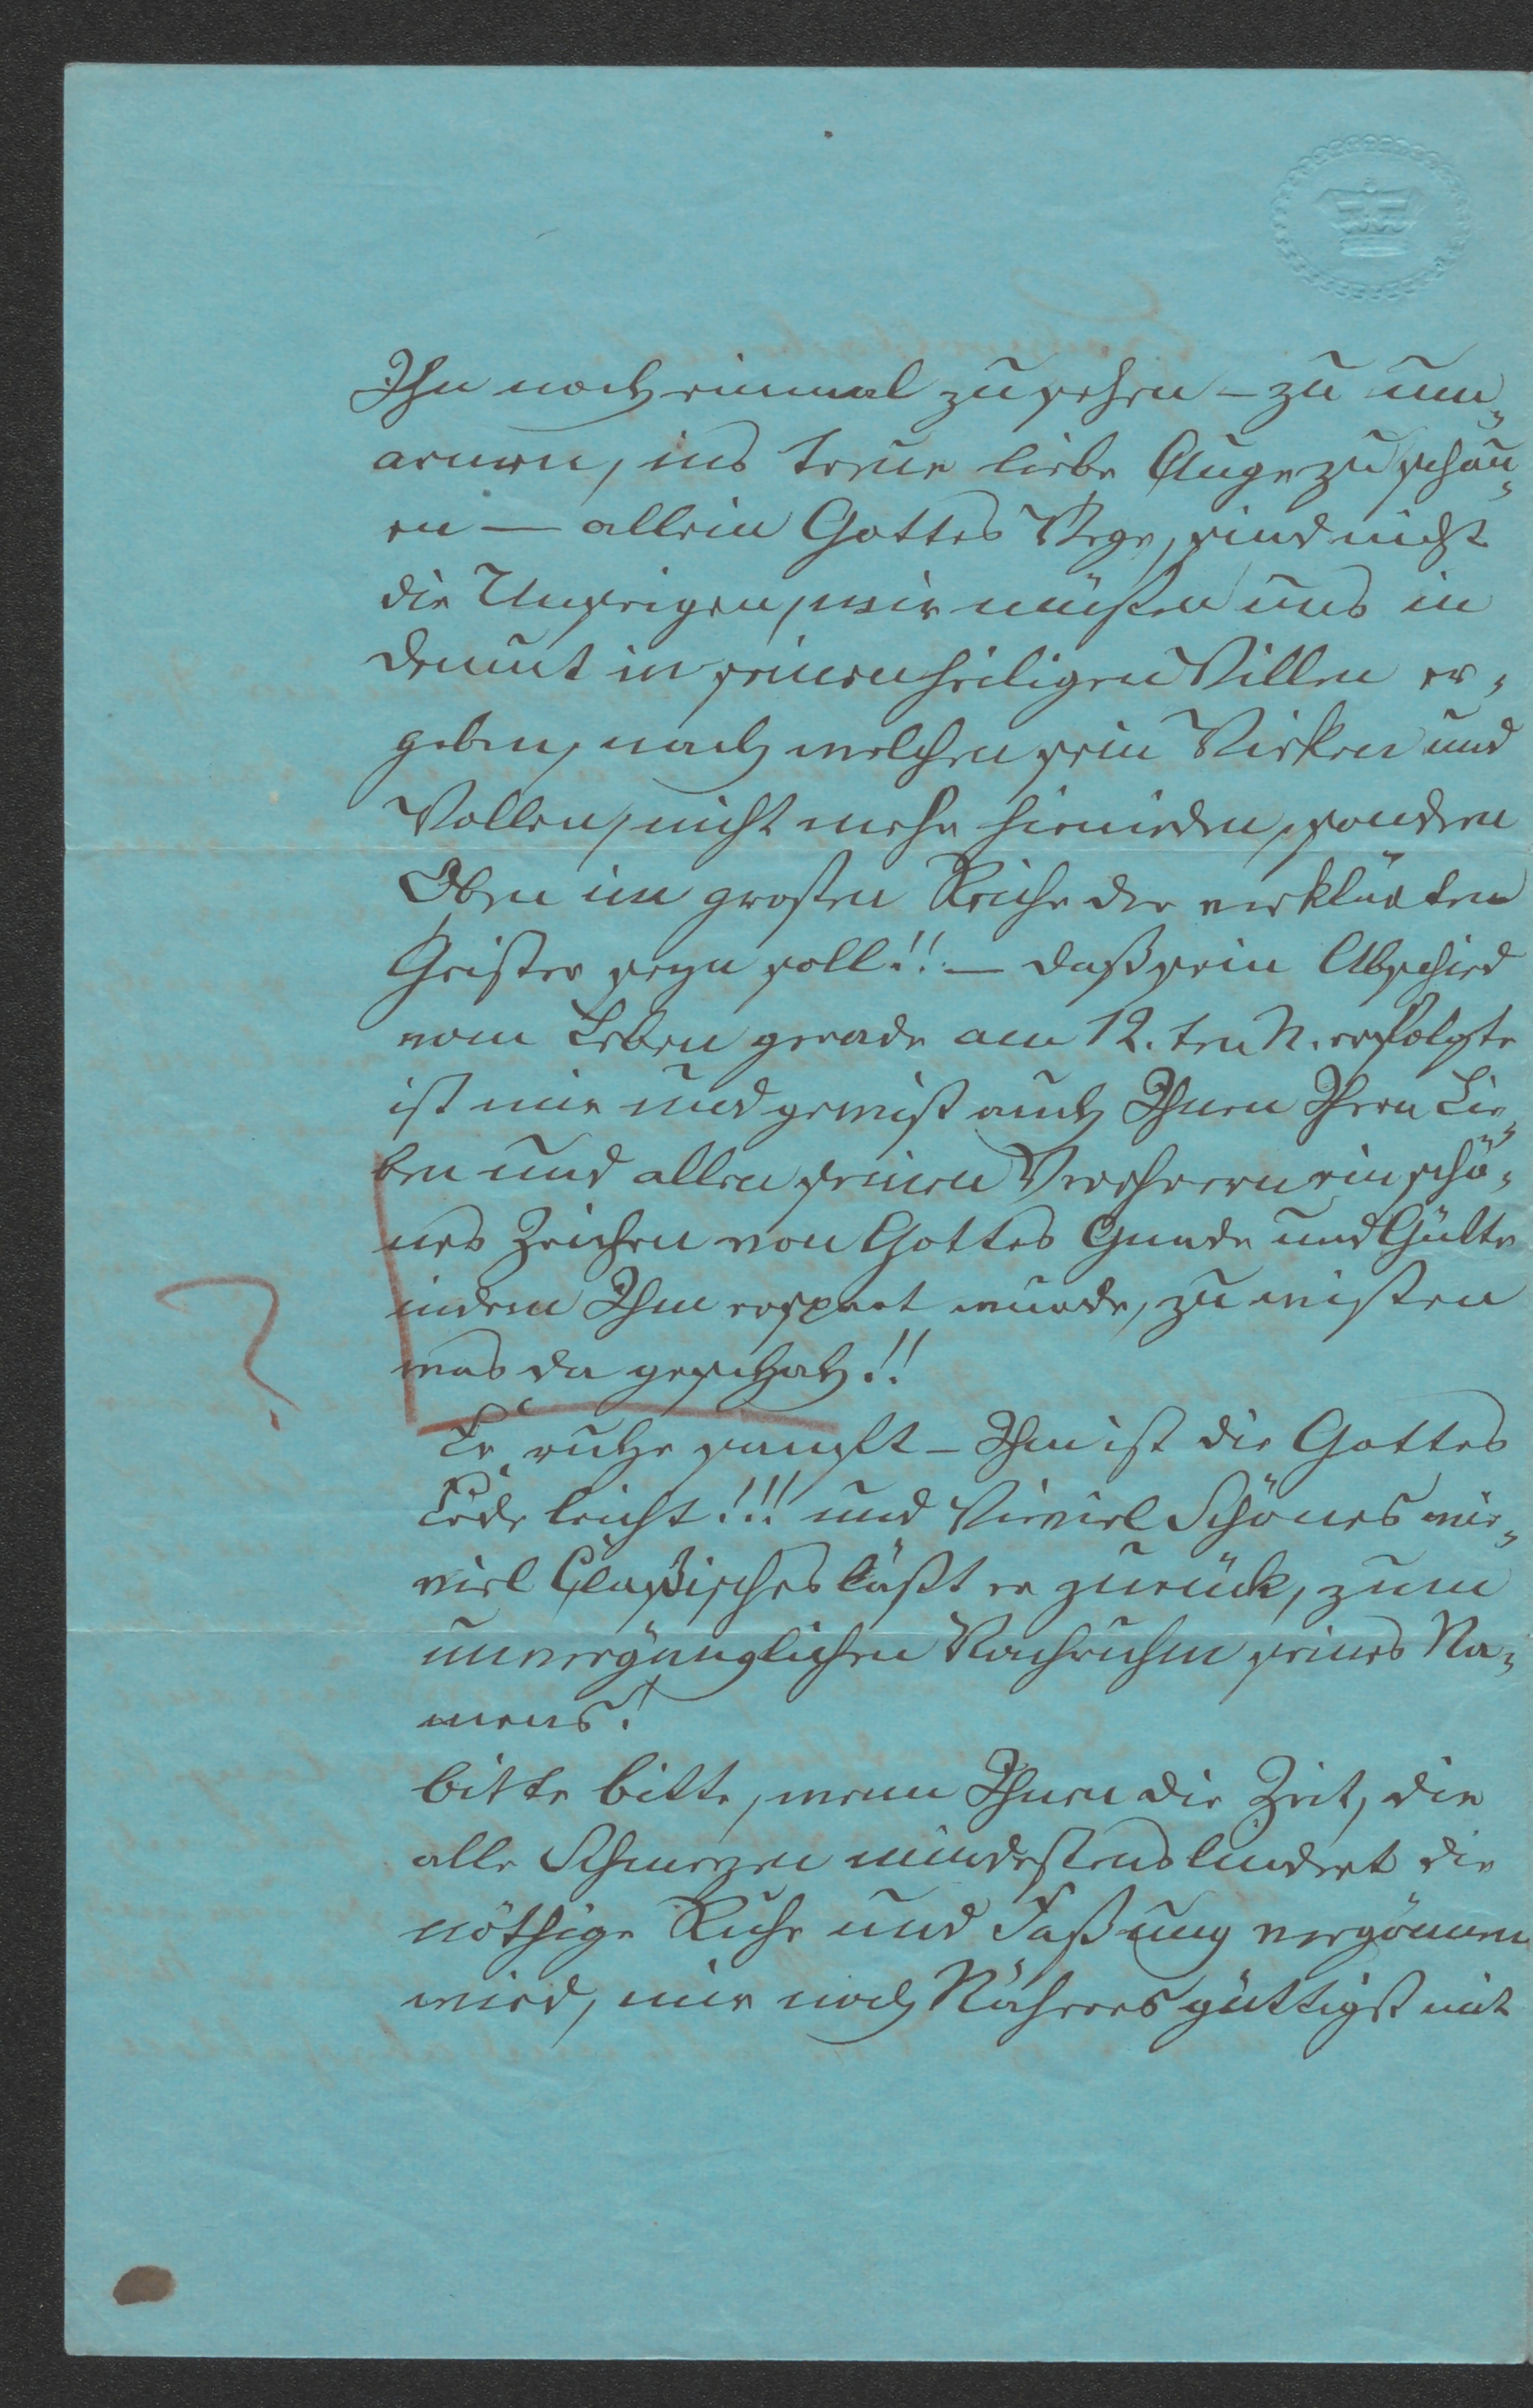 Ihn noch einmal zu sehen – zu um„
armen, ins treue liebe Auge zu schau„
en — allein Gottes Wege, sind nicht
die Unsrigen, wir müßen uns in
Demut in seinen heiligen Willen er„
geben, nach welchen sein Wirken und
Wollen, nicht mehr hienieden, sondern
Oben im großen Reiche der verklärten
Geister seyn soll!! — daß sein Abschied
vom Leben gerade am 12. ten N. erfolgte
ist mir und gewiß auch Ihnen Ihren Lie„
ben und allen seinen Verehrern ein schö„
nes Zeichen von Gottes Gnade und Gütte
indem Ihm erspart wurde, zu wißen
was da geschah!!
?
Er ruhe sanft – Ihm ist die Gottes
Erde leicht!!! und Wieviel Schönes wie„
viel Claßisches läßt er zurück, zum
unvergänglichen Nachruhm seines Na„
mens!
bitte bitte, wenn Ihnen die Zeit, die
alle Schmerzen mindestens lindert die
nöthige Ruhe und Faßung vergönnen
wird, mir noch Näheres güttigst mit